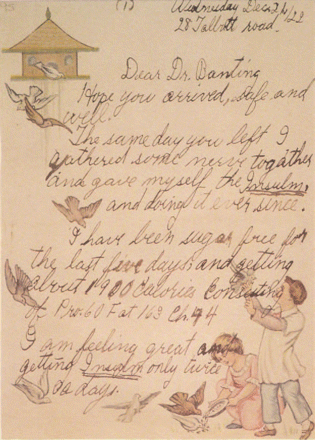 (1) Wednesday Dec. 26/22
28 Talbott road.
Dear Dr. Banting
Hope you arrived, safe and
well.
The same day you left I
gathered some nerve togather
and gave myself the Insulin,
and doing it ever since.
I have been sugar free for
the last five days; and getting
about 1900 Calories consisting
of Pro. 60 Fat 163 Ch. 44
I am feeling great and
getting Insulin only twice
a days.